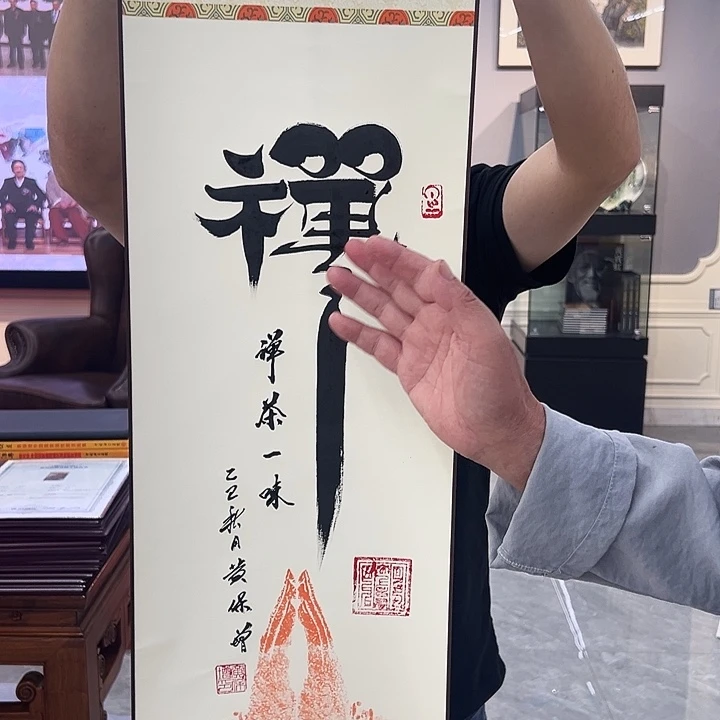 禪
禅茶一味
乙巳秋月黄保增